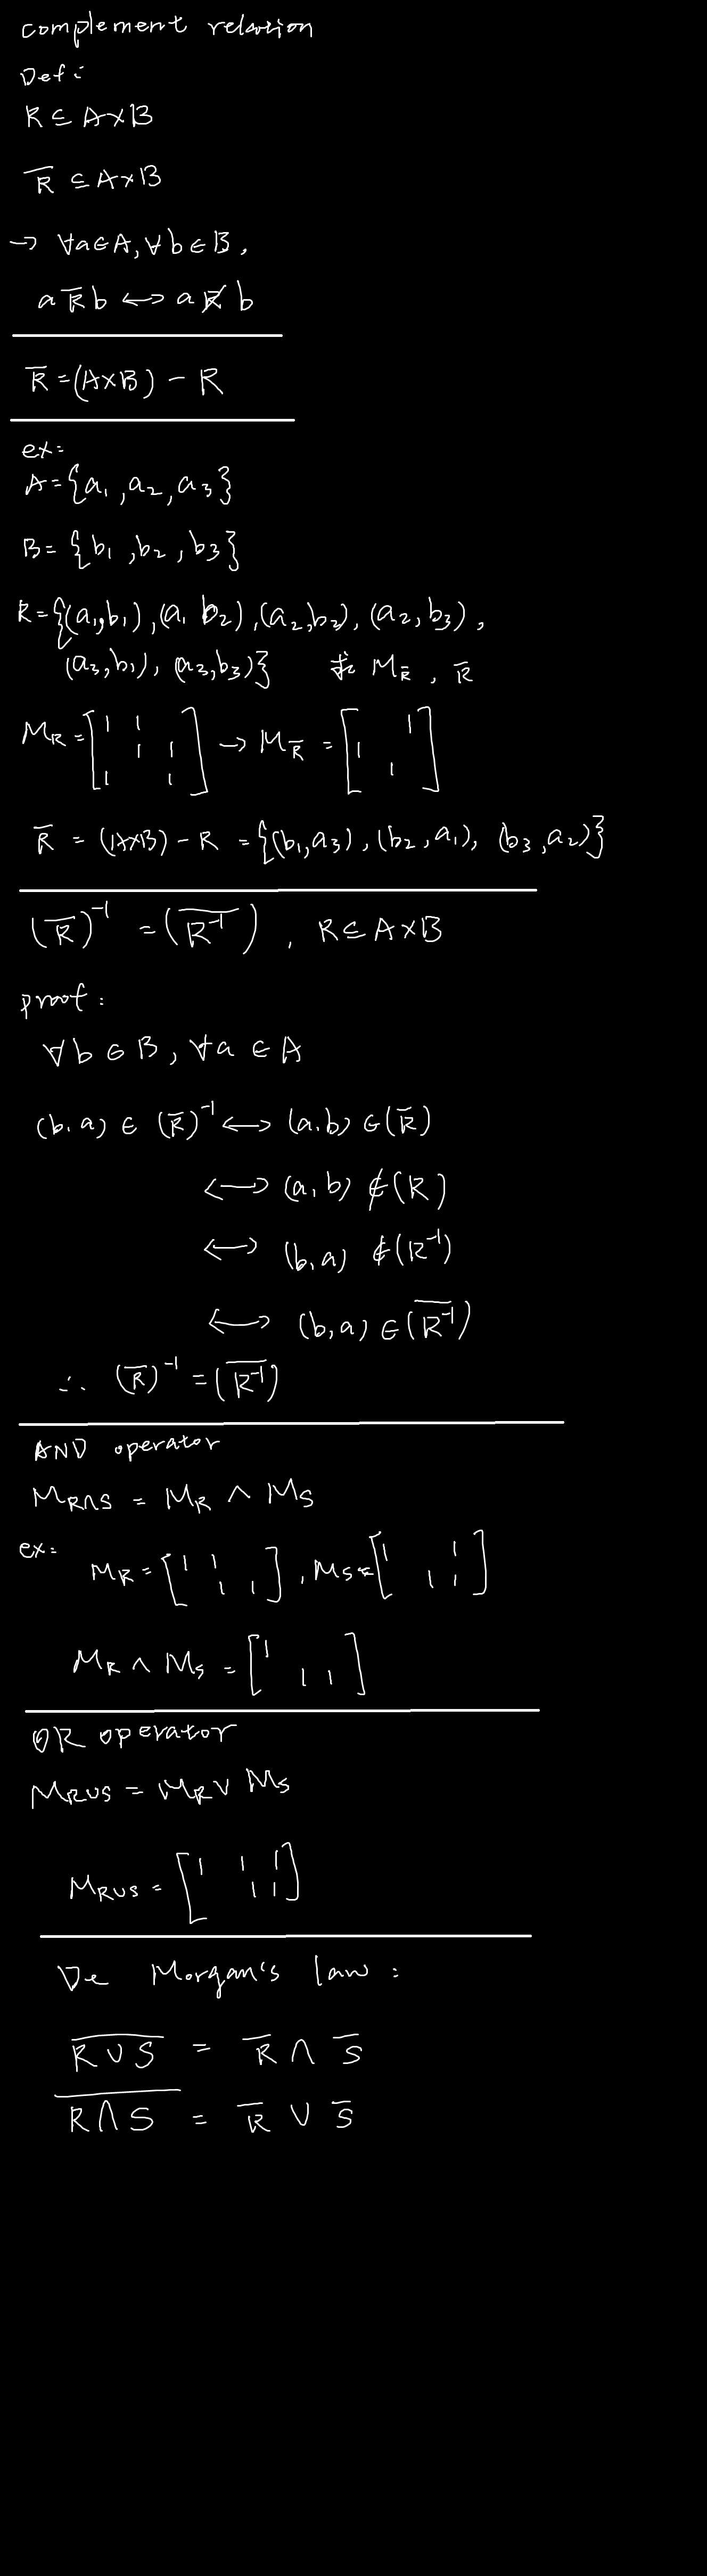 complement relation
Def:
R ⊆ A×B
R̅ ⊆ A×B
→ ∀a∈A, ∀b∈B,
a R̅ b ↔ a R̸ b
R̅ = (A×B) - R
ex:
A = {a₁, a₂, a₃}
B = {b₁, b₂, b₃}
R = {(a₁,b₁), (a₁ b₂), (a₂,b₂), (a₂,b₃),
(a₃,b₁), (a₃,b₃)} 求 M_R̅, R̅
M_R = [1 1 ; 1 1 ; 1 1] → M_R̅ = [1 ; 1 ; 1]
R̅ = (A×B) - R = {(b₁,a₃), (b₂,a₁), (b₃,a₂)}
(R̅)⁻¹ = (\overline{R⁻¹}), R ⊆ A×B
proof:
∀b∈B, ∀a∈A
(b,a) ∈ (R̅)⁻¹ ↔ (a,b) ∈ (R̅)
↔ (a,b) ∉ (R)
↔ (b,a) ∉ (R⁻¹)
↔ (b,a) ∈ (\overline{R⁻¹})
∴ (R̅)⁻¹ = (\overline{R⁻¹})
AND operator
M_R∩S = M_R ∧ M_S
ex: M_R = [1 1 ; 1 1], M_S = [1 1 ; 1 1]
M_R ∧ M_S = [1 ; 1 1]
OR operator
M_R∪S = M_R ∨ M_S
M_R∪S = [1 1 1 ; 1 1]
De Morgan's law:
\overline{R ∪ S} = R̅ ∩ S̅
\overline{R ∩ S} = R̅ ∪ S̅